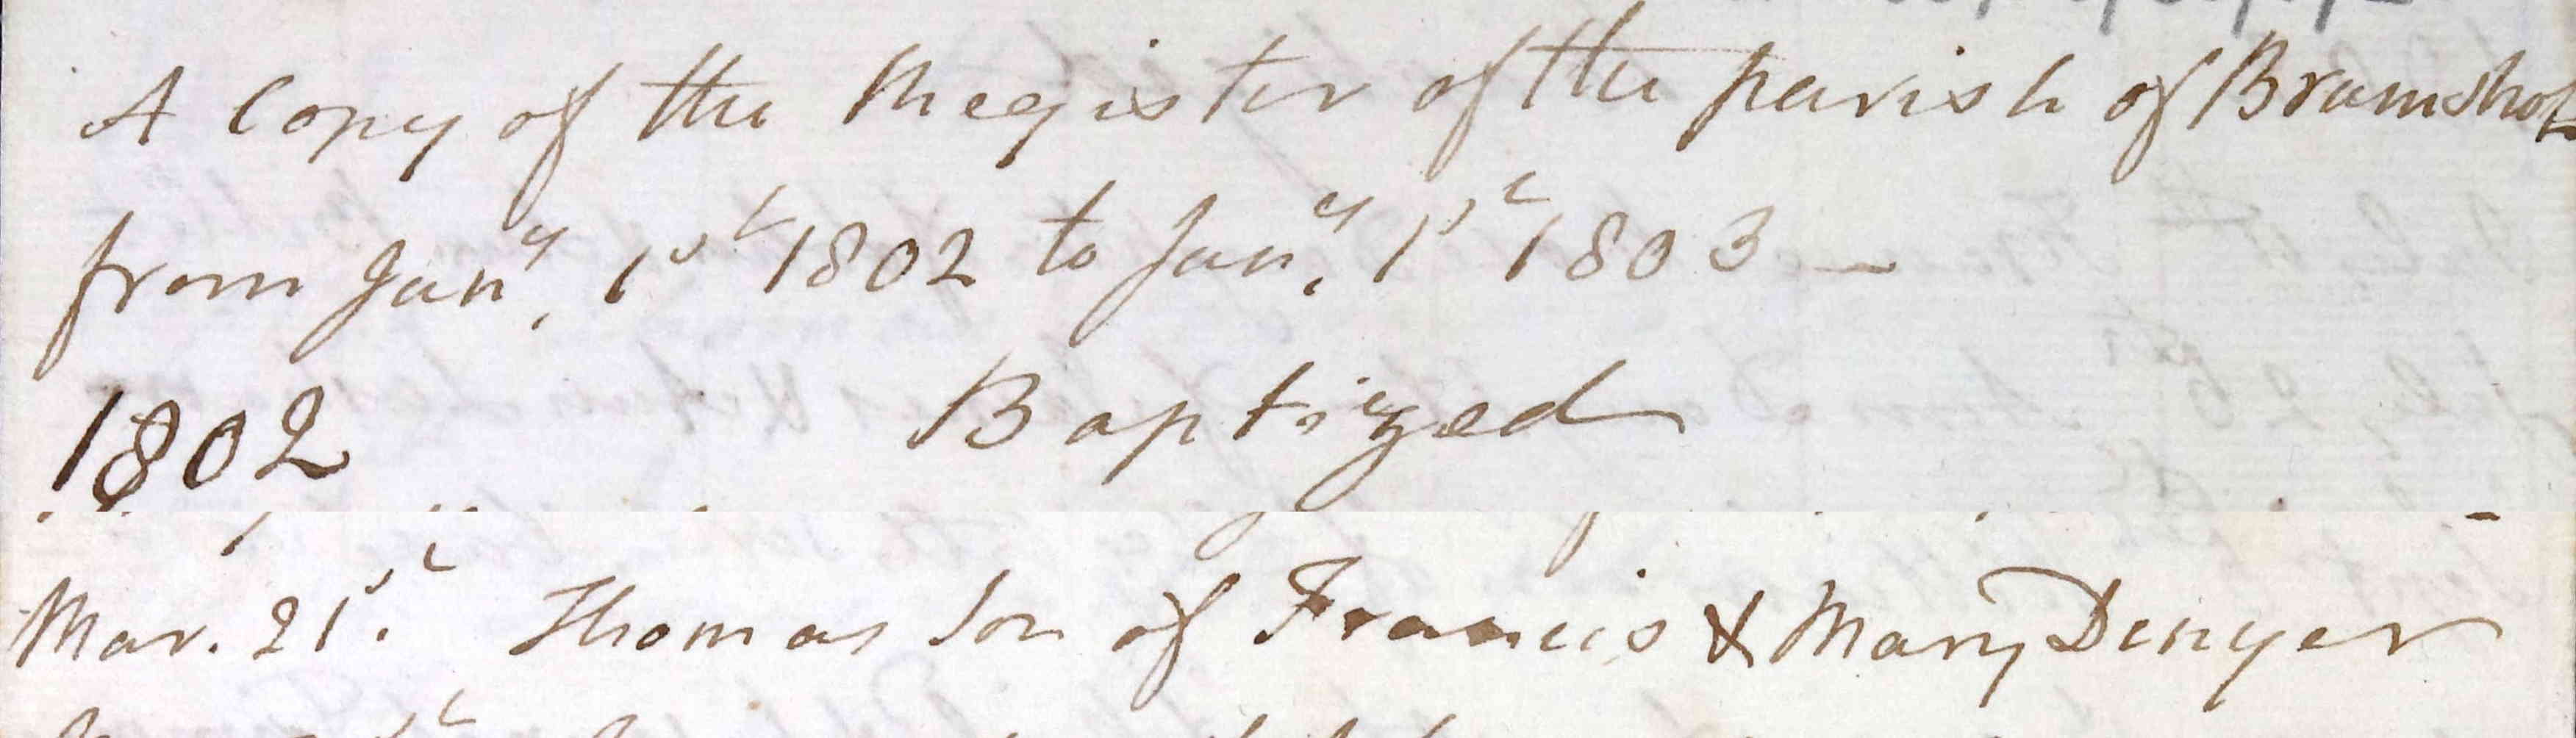 A Copy of the Register of the parish of Bramshott
from Jany. 1st 1802 to Jany. 1st 1803 —
1802 Baptized
Mar. 21st. Thomas Son of Francis & Mary Denyer